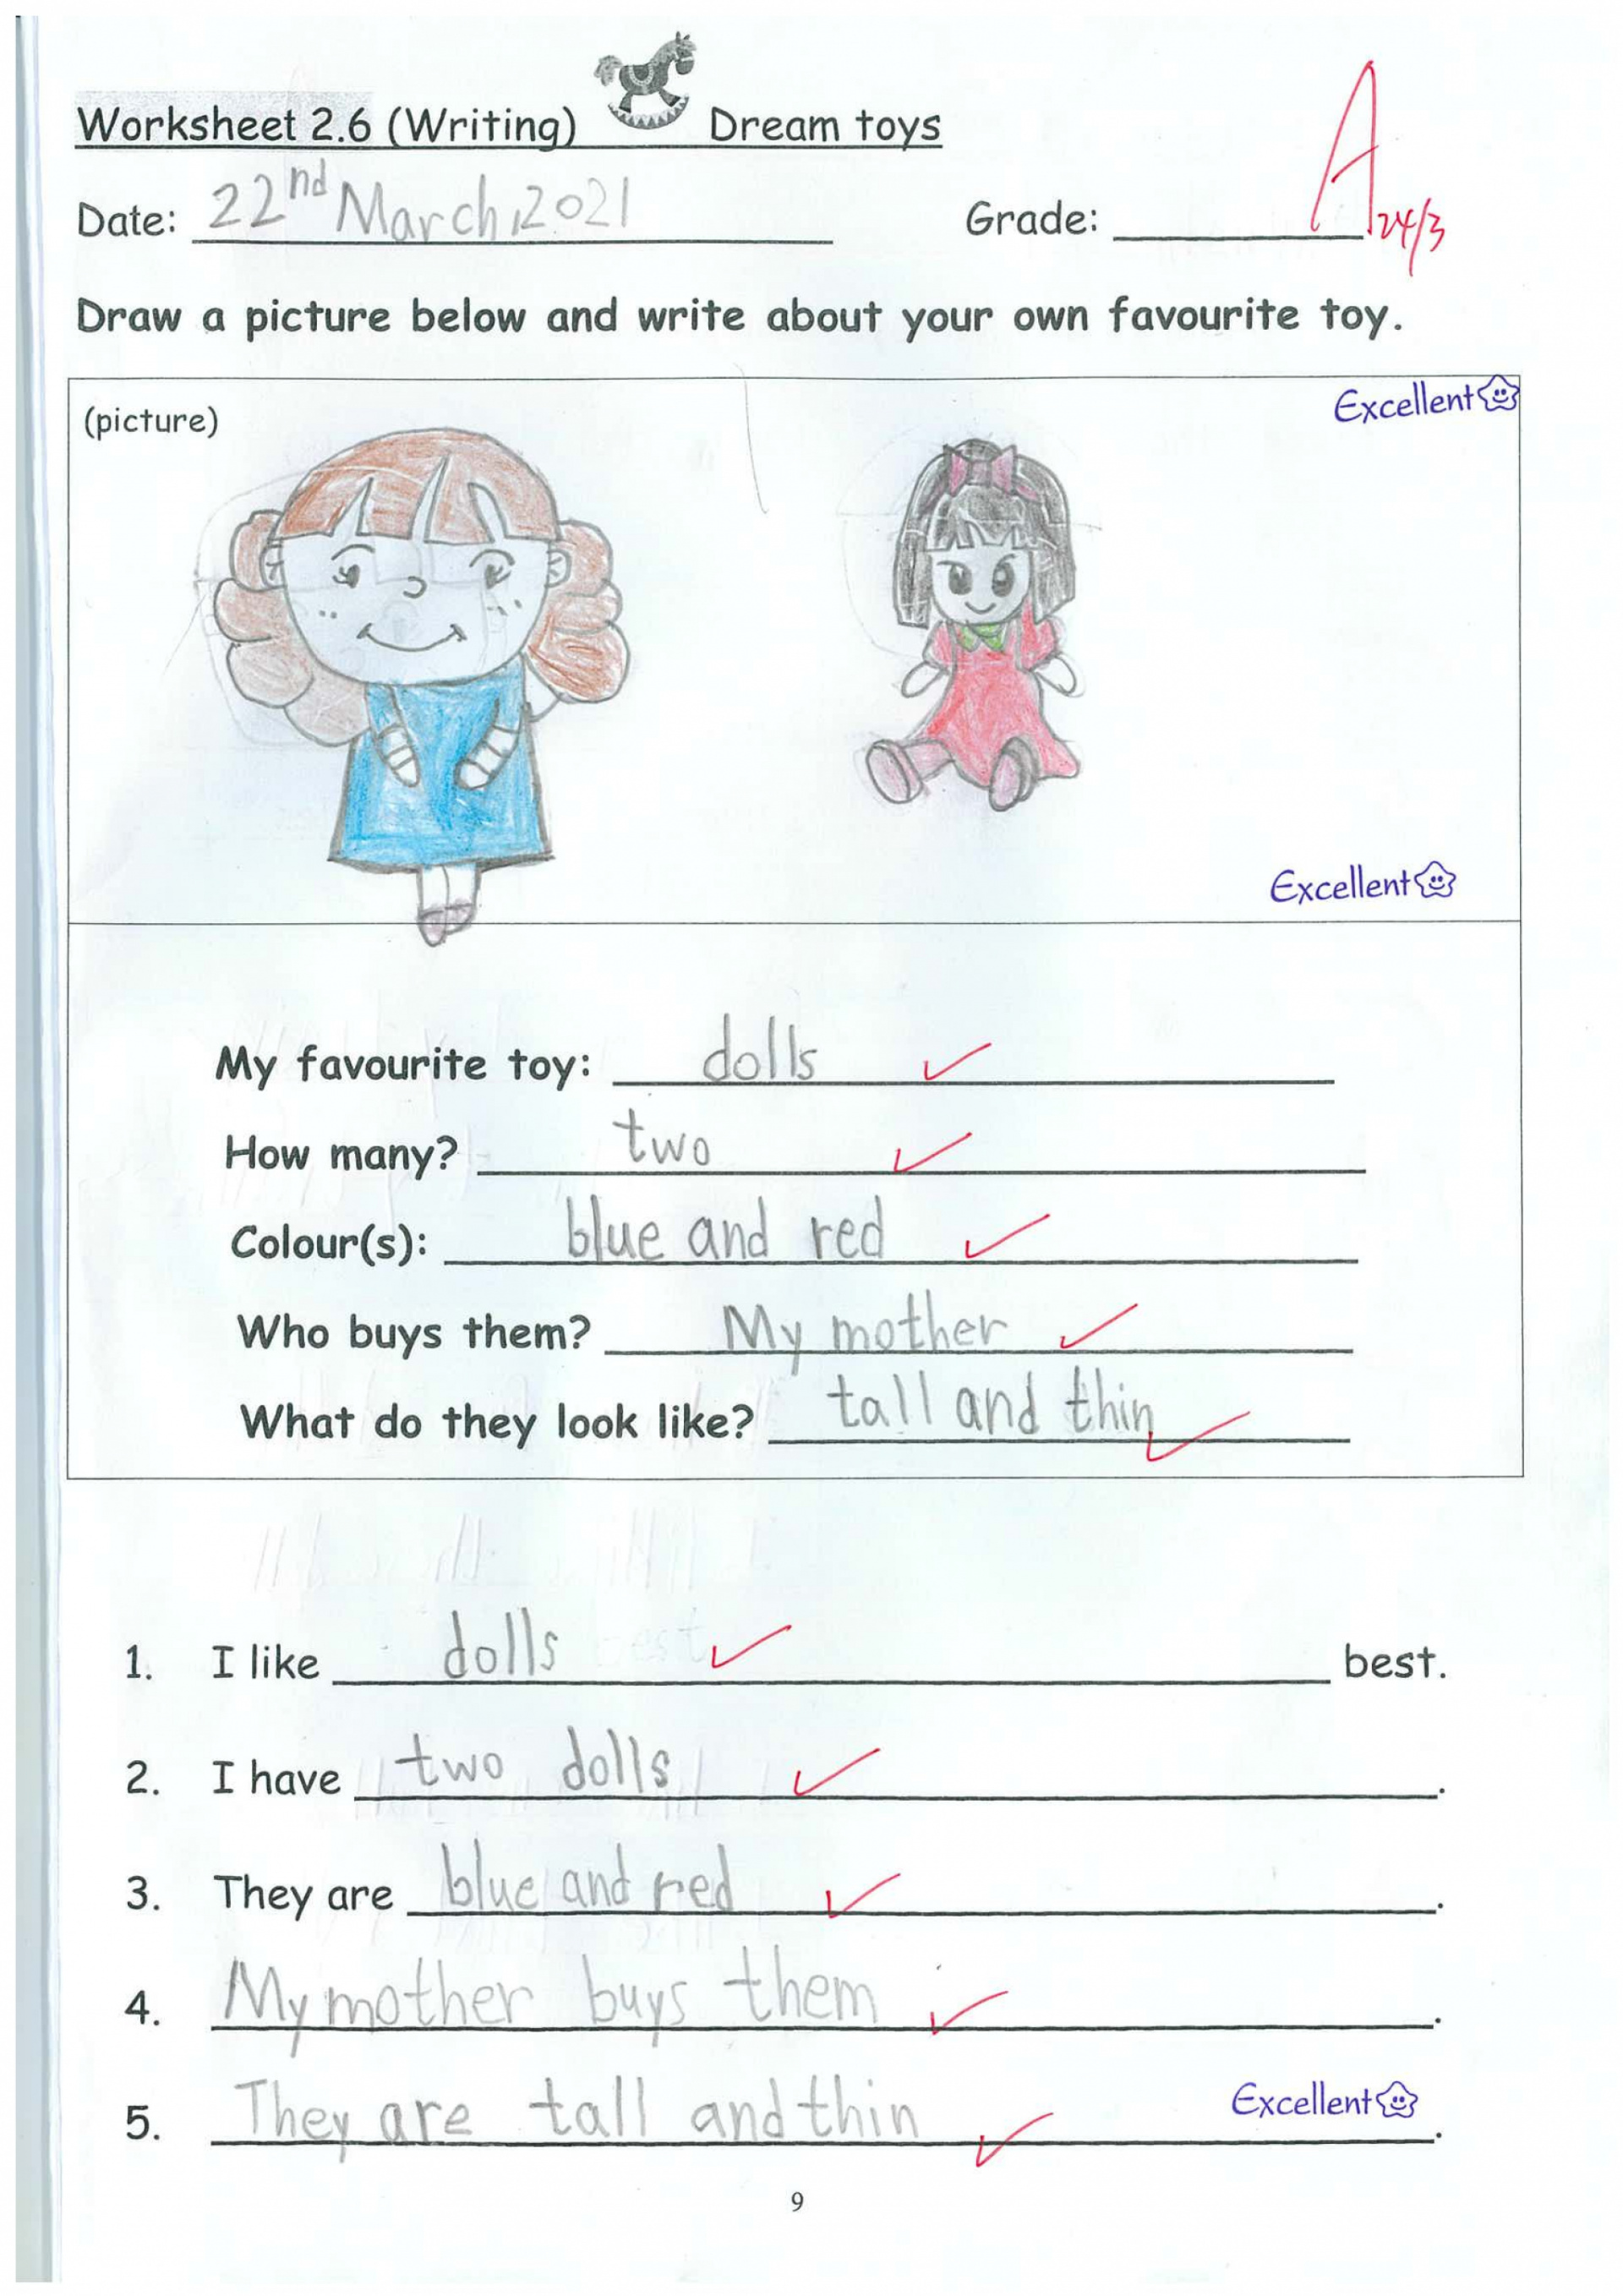 Worksheet 2.6 (Writing) Dream toys
Date: 22nd March, 2021 Grade: A 24/3
Draw a picture below and write about your own favourite toy.
(picture) Excellent
Excellent
My favourite toy: dolls
How many? two
Colour(s): blue and red
Who buys them? My mother
What do they look like? tall and thin
1. I like dolls best.
2. I have two dolls.
3. They are blue and red.
4. My mother buys them.
5. They are tall and thin. Excellent
9